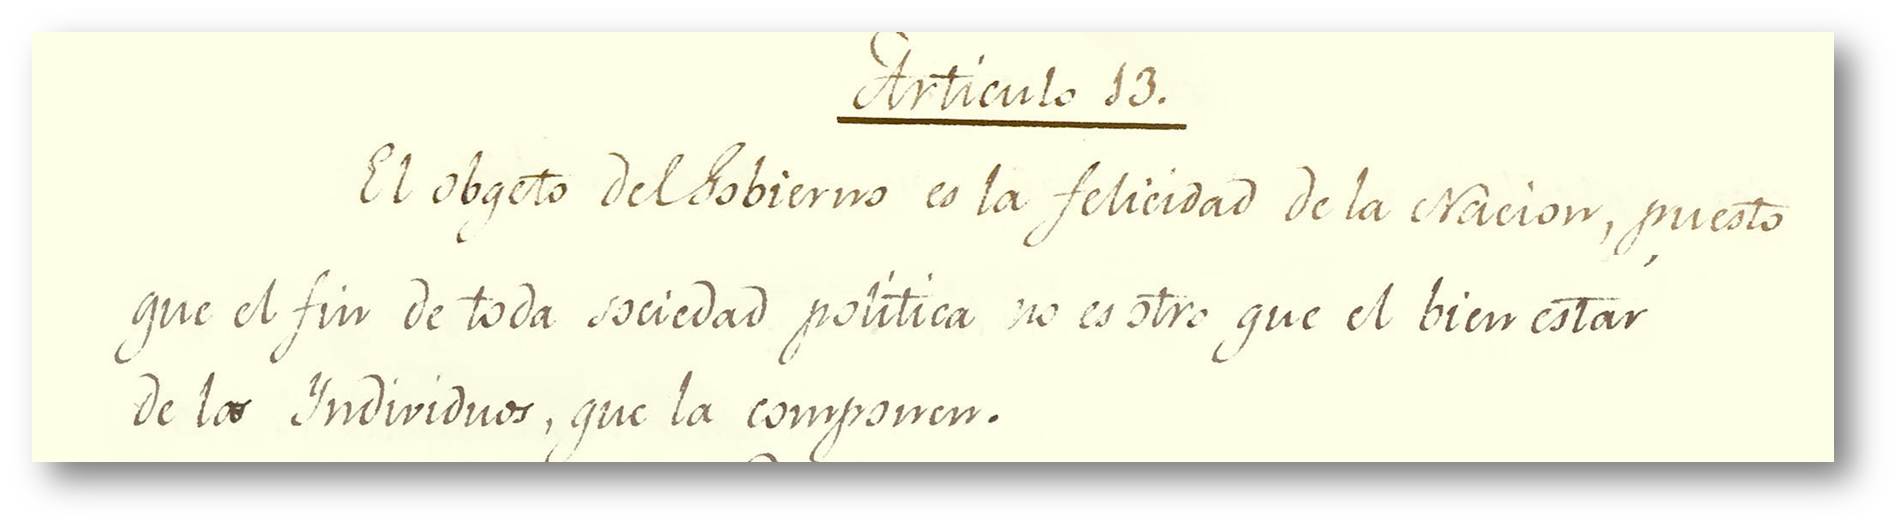 Articulo 13.
El obgeto del Gobierno es la felicidad de la Nacion, puesto
que el fin de toda sociedad política no es otro que el bien estár
de los Individuos, que la componen.